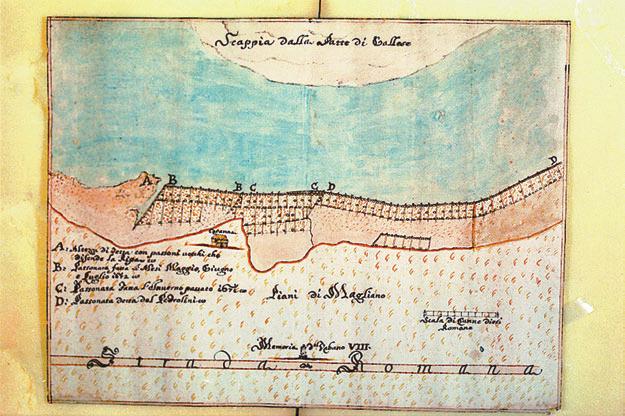 Scappia dalla Parte di Gallese
A B B C C D D
Capanna
A: di detta con passoni uechi che
difende la Ripa
B: Passonata fatta di Mesi Maggio Giugno
e Luglio
C: Passonata passato
D: Passonata detta del Pedrolini
Piani di Magliano
Scala di Canne dieci
Romane
Memoria di Vrbano VIII
Strada Romana